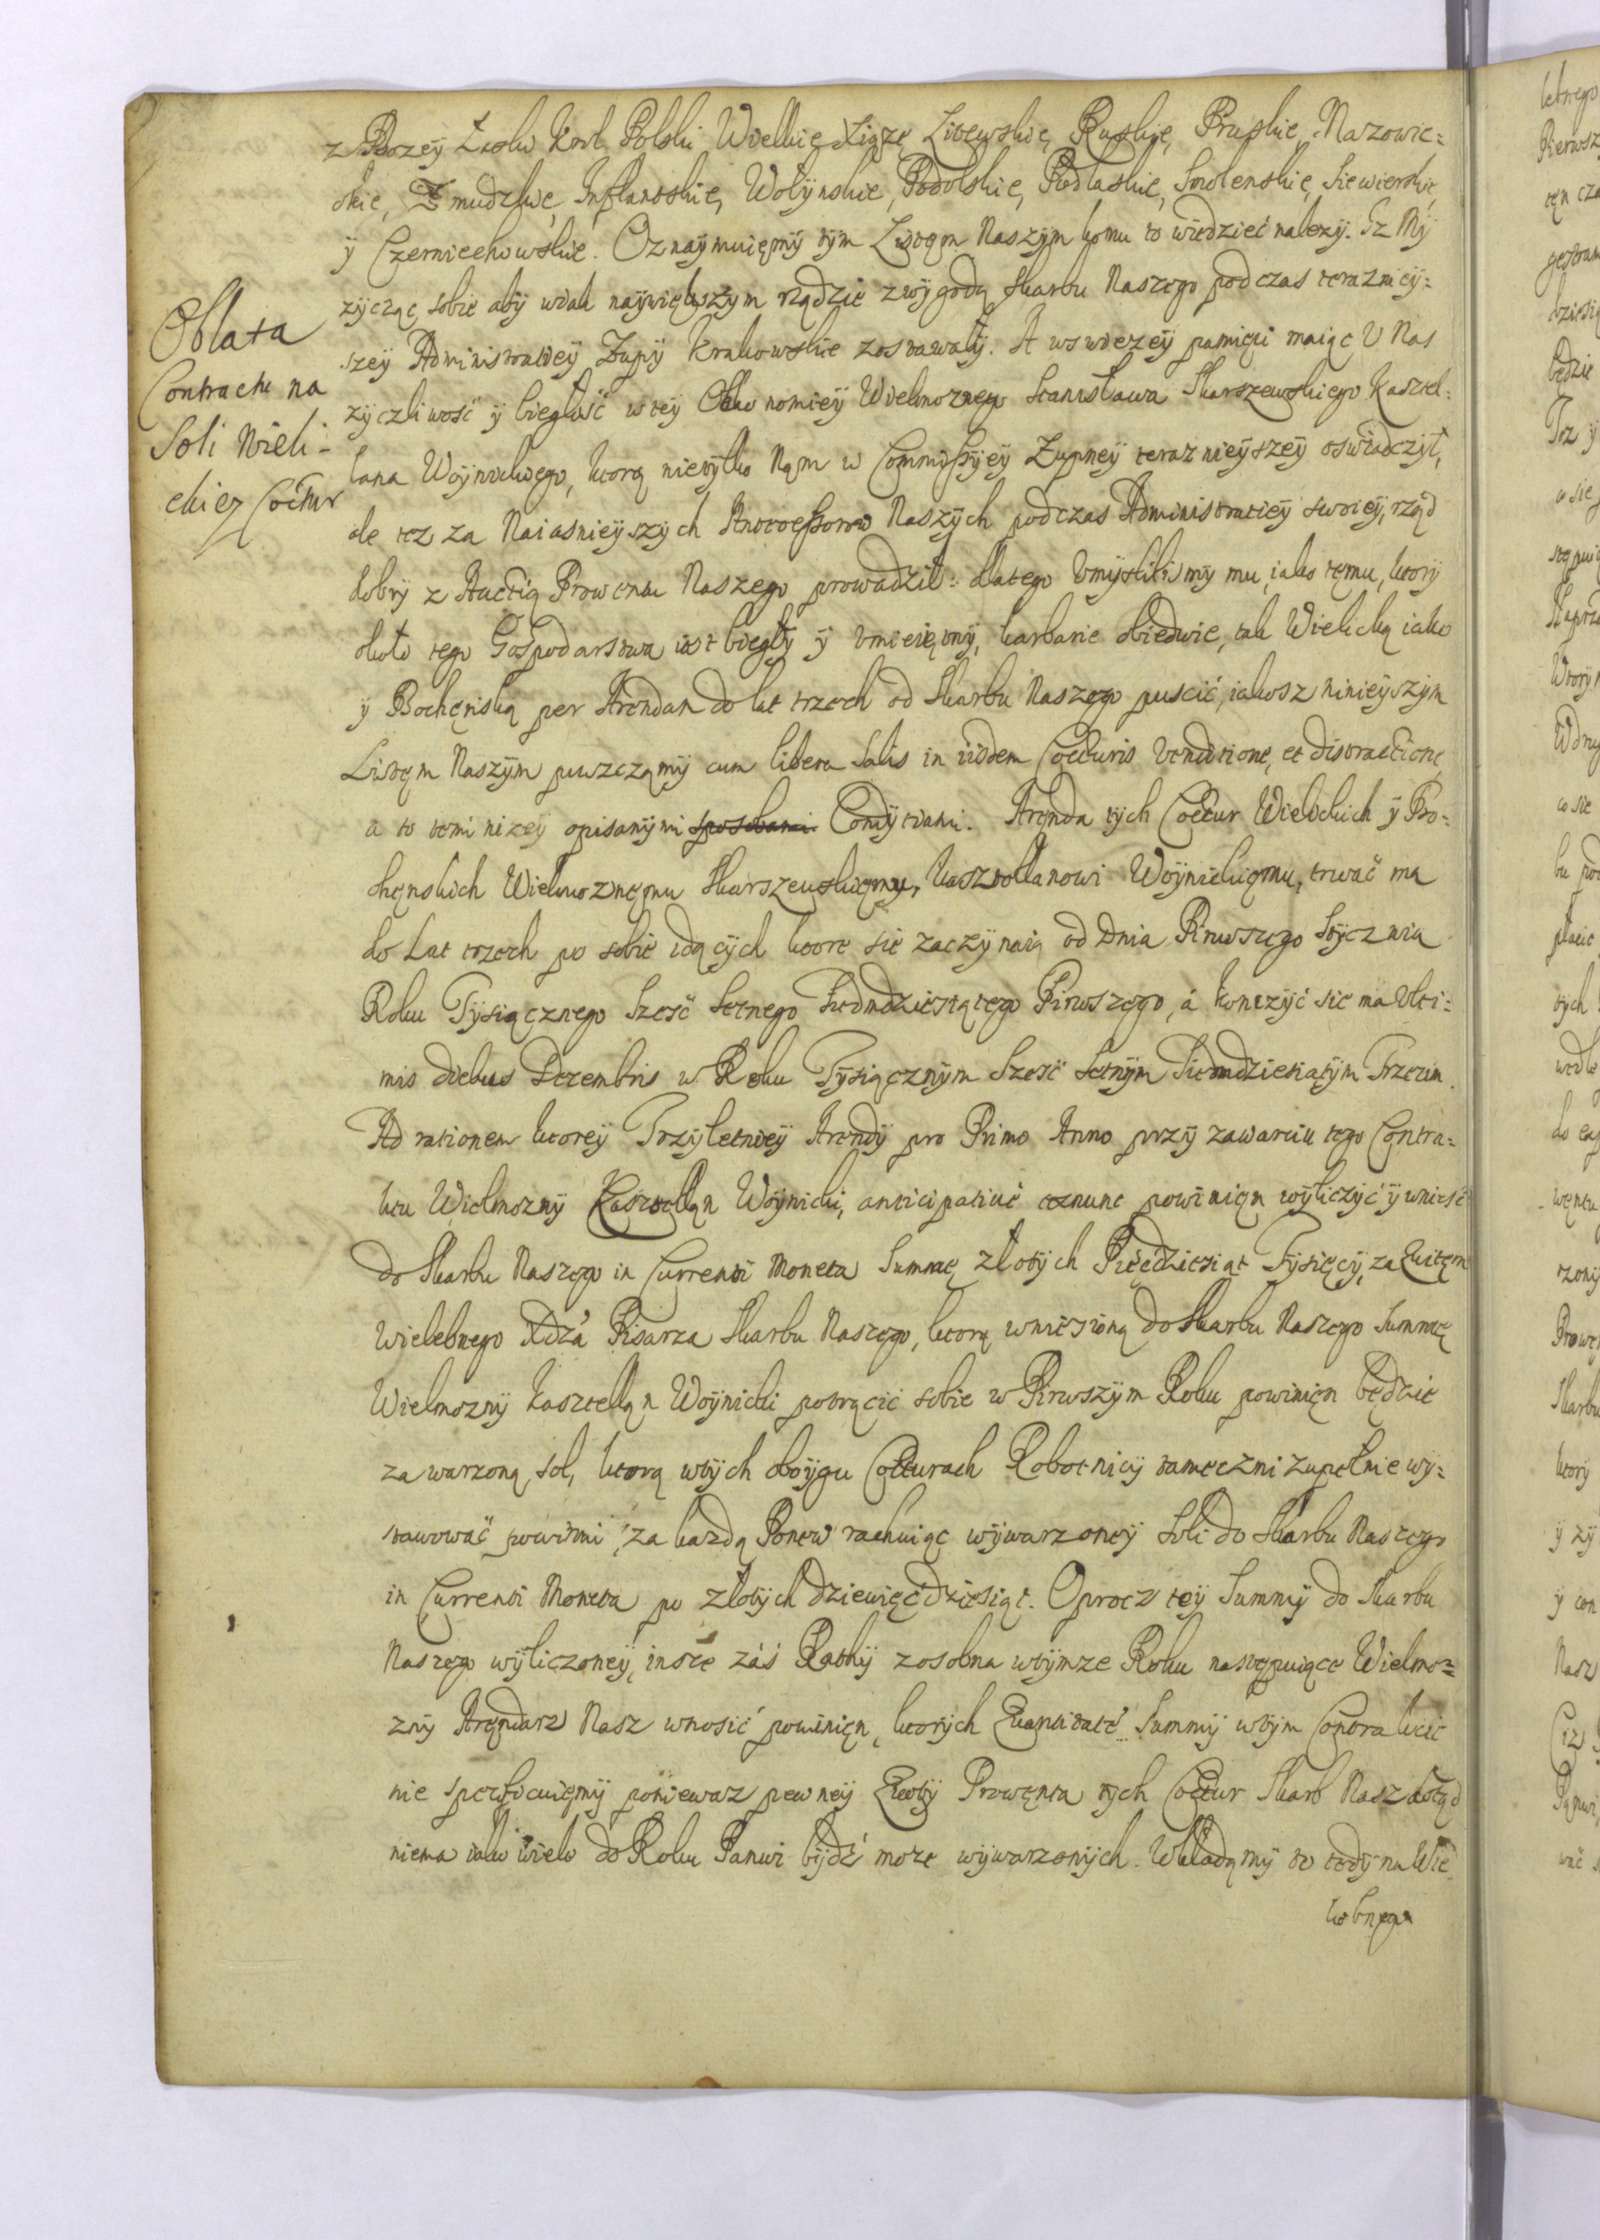 z Bozey Łaski Krol Polski Wielkie Xiąze Litewskie, Ruskie, Pruskie, Mazowie-
ckie, Zmudzkie, Inflantskie, Wołynskie, Podolskie, Podlaskie, Smolenskie, Siewierskie,
ÿ Czerniechowskie. Oznaÿmuięmÿ tÿm Listęm Naszÿm komu to wiedzieć nalezÿ. Iz Mÿ
zÿcząc sobie abÿ w iak naÿwiększym rządzie z wÿgodą Skarbu Naszego podczas teraznieÿ-
szeÿ Administratieÿ Zupÿ Krakowskie zostawałÿ. A w swiezeÿ pamięci maiąc U Nas
Oblata
Contractu na
Soli Wieli-
ckiez Coctur
zÿczliwość ÿ biegłość w teÿ Oekonomieÿ Wielmoznego Stanisława Skarszewskiego Kasztel-
lana Woÿnickiego, ktorą nietÿlko Nąm w Commissÿeÿ Zupneÿ teraznieÿszeÿ oswiadczÿł,
ale tez za Naiasnieÿszÿch Antecessorow Naszÿch podczas Administratieÿ swoieÿ, rząd
dobrÿ z Auctią Prowentu Naszego prowadził: dlatego Umÿslilismÿ mu, iako tęmu, ktorÿ
około tego Gospodarstwa iest biegłÿ ÿ Umieiętnÿ, karbarie obiedwie, tak Wielicką iako
ÿ Bochęnską per Arendam do lat trzech od Skarbu Naszego puscić, iakosz ninieÿszÿm
Listęm Naszÿm puszczamÿ cum libera Salis in iisdem Cocturis Venditione, et distractione,
a to temi nizeÿ opisanÿmi sposobami Condÿtiami. Arenda tÿch Coctur Wielickich ÿ Bo-
chęnskich Wielmoznęmu Skarszewskięmu, Kasztellanowi Woÿnickięmu, trwać ma
do Lat trzech po sobie idącÿch ktore się zaczÿnaią od Dnia Pirwszego Stÿcznia
Roku Tÿsiącznego Szesć Setnego Siedmdziesiątego Pirwszego, á konczÿć się ma Ulti-
mis diebus Decembris w Roku Tÿsiącznÿm Szesć Setnÿm Siedmdziesiątÿm Trzecim.
Ad rationem ktoreÿ Trzÿletnieÿ Arendÿ pro Primo Anno przÿ zawarciu tego Contra-
ktu Wielmoznÿ Kasztellan Woÿnicki, anticipative eznunc powinięn wÿliczÿć ÿ wniesć
do Skarbu Naszego in Currenti Moneta Summę złotÿch Pięćdziesiąt Tÿsięcÿ, za Quitęm
Wielebnego Xdza Pisarza Skarbu Naszego, ktorą wniesioną do Skarbu Naszego Summę
Wielmoznÿ Kasztellan Woÿnicki potrącić sobie w Pirwszÿm Roku powinięn będzie
za warzoną sol, ktorą w tÿch oboÿgu Cocturach Robotnicÿ tameczni zupełnie wÿ-
stawować powinni, za kazdą Panew rachuiąc wÿwarzoneÿ Soli do Skarbu Naszego
in Currenti Moneta po złotÿch dziewięćdziesiąt. Oprocz teÿ Summÿ do Skarbu
Naszego wÿliczoneÿ, insze záś Rathÿ zosobna w tÿmze Roku nastepuiące Wielmo-
znÿ Arędarz Nasz wnosić powinięn, ktorÿch Quantitate Summÿ w tÿm Contrakcie
nie specificuięmÿ poniewaz pewneÿ Quotÿ Prowęntu tÿch Coctur Skarb Nasz dotąd
niema iako wiele do Roku Panwi bÿdź moze wÿwarzonÿch. Wkładamÿ to tedÿ na Wie-
lebnego